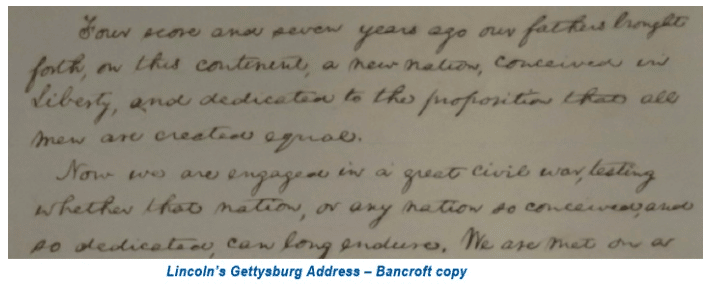 Four score and seven years ago our fathers brought
forth, on this continent, a new nation, conceived in
Liberty, and dedicated to the proposition that all
men are created equal.
Now we are engaged in a great civil war, testing
whether that nation, or any nation so conceived, and
so dedicated, can long endure. We are met on a
Lincoln's Gettysburg Address – Bancroft copy